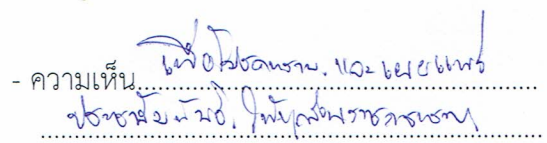 - ความเห็น เพื่อโปรดทราบ. และเผยแพร่
ประชาสัมพันธ์. ให้ข้าราชการทราบ